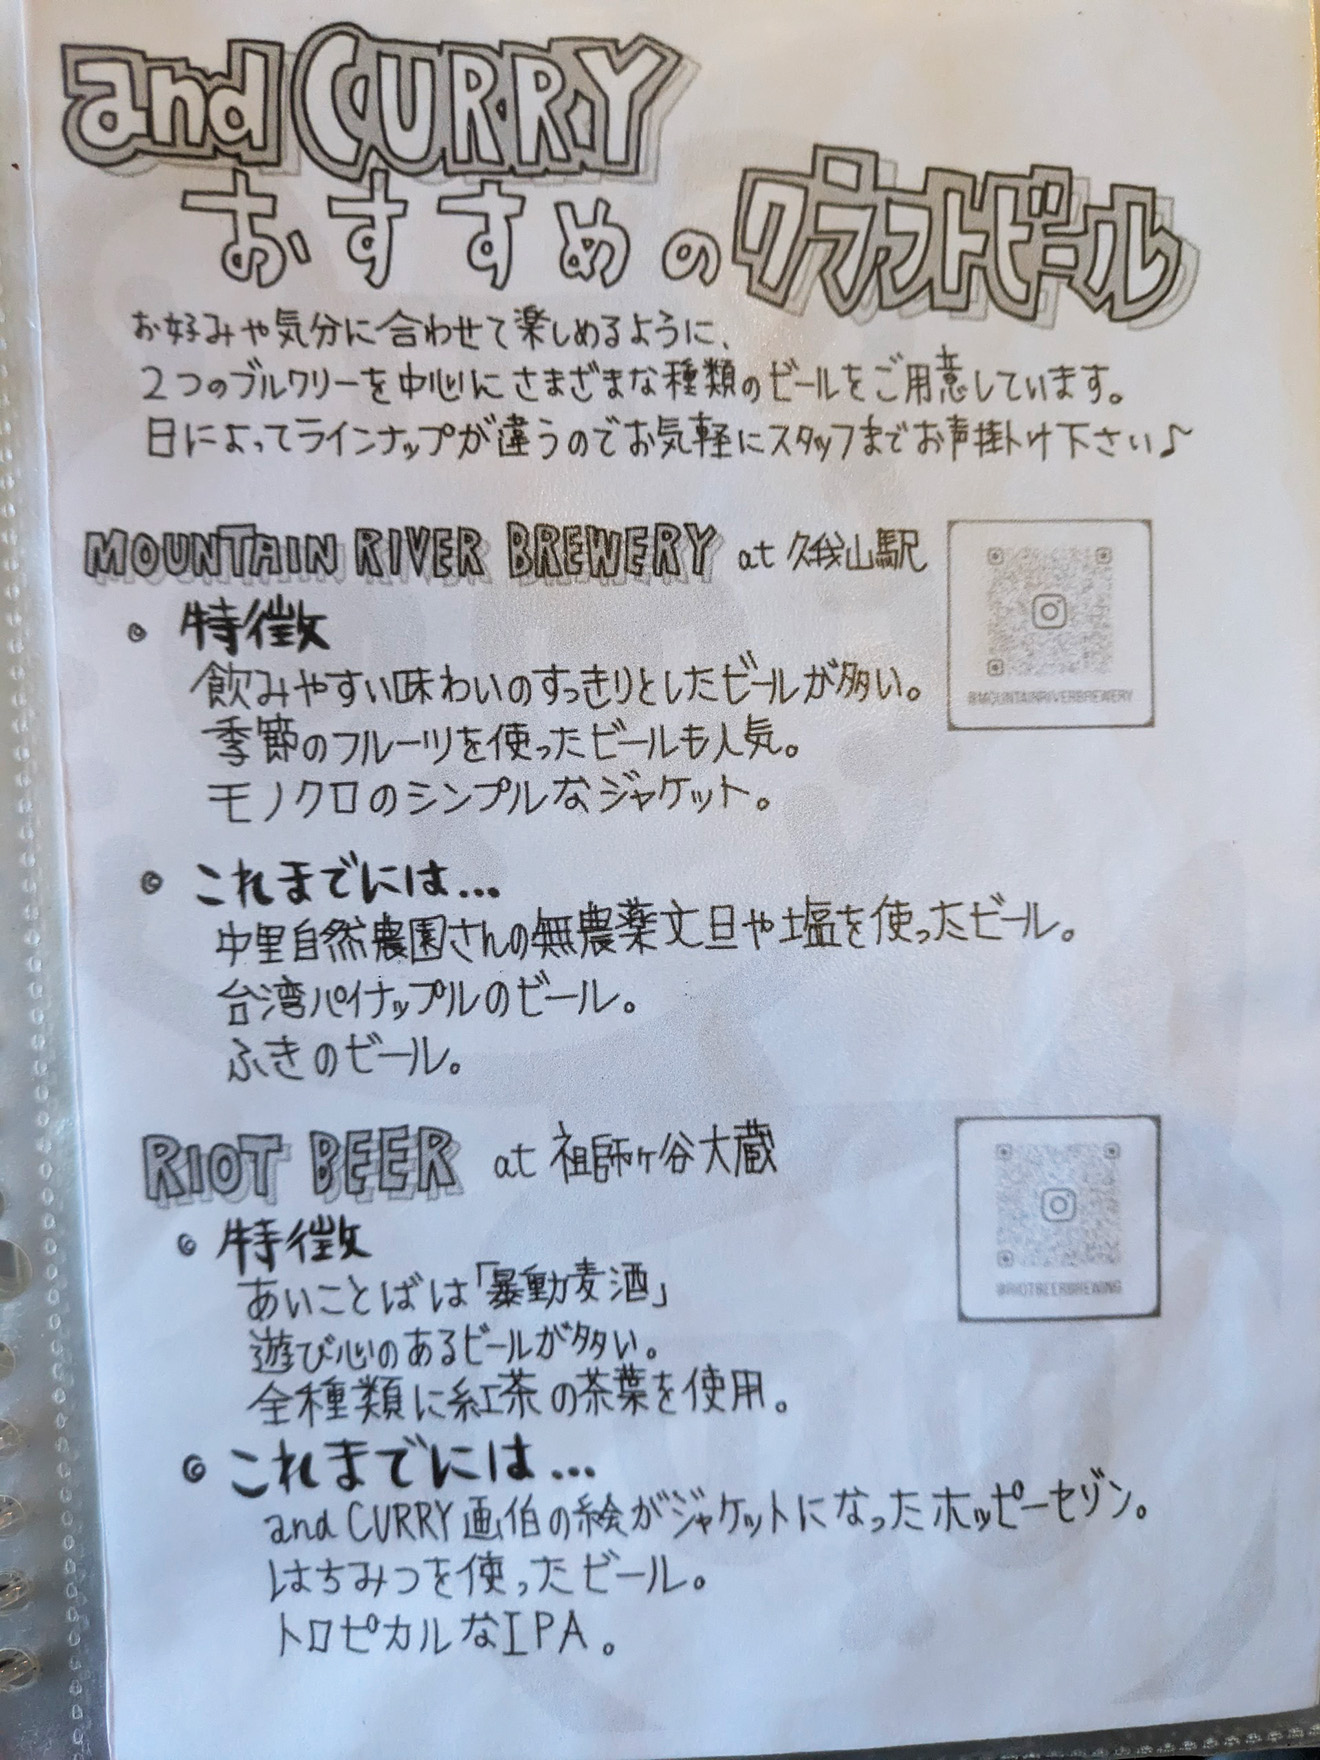 and CURRY
おすすめのクラフトビール
お好みや気分に合わせて楽しめるように、
2つのブルワリーを中心にさまざまな種類のビールをご用意しています。
日によってラインナップが違うのでお気軽にスタッフまでお声掛け下さい♪
MOUNTAIN RIVER BREWERY at 久我山駅
@MOUNTAINRIVERBREWERY
• 特徴
飲みやすい味わいのすっきりとしたビールが多い。
季節のフルーツを使ったビールも人気。
モノクロのシンプルなジャケット。
• これまでには...
中里自然農園さんの無農薬文旦や塩を使ったビール。
台湾パイナップルのビール。
ふきのビール。
RIOT BEER at 祖師ヶ谷大蔵
@RIOTBEERBREWING
• 特徴
あいことばは「暴動麦酒」
遊び心のあるビールが多い。
全種類に紅茶の茶葉を使用。
• これまでには...
and CURRY画伯の絵がジャケットになったホッピーセゾン。
はちみつを使ったビール。
トロピカルなIPA。